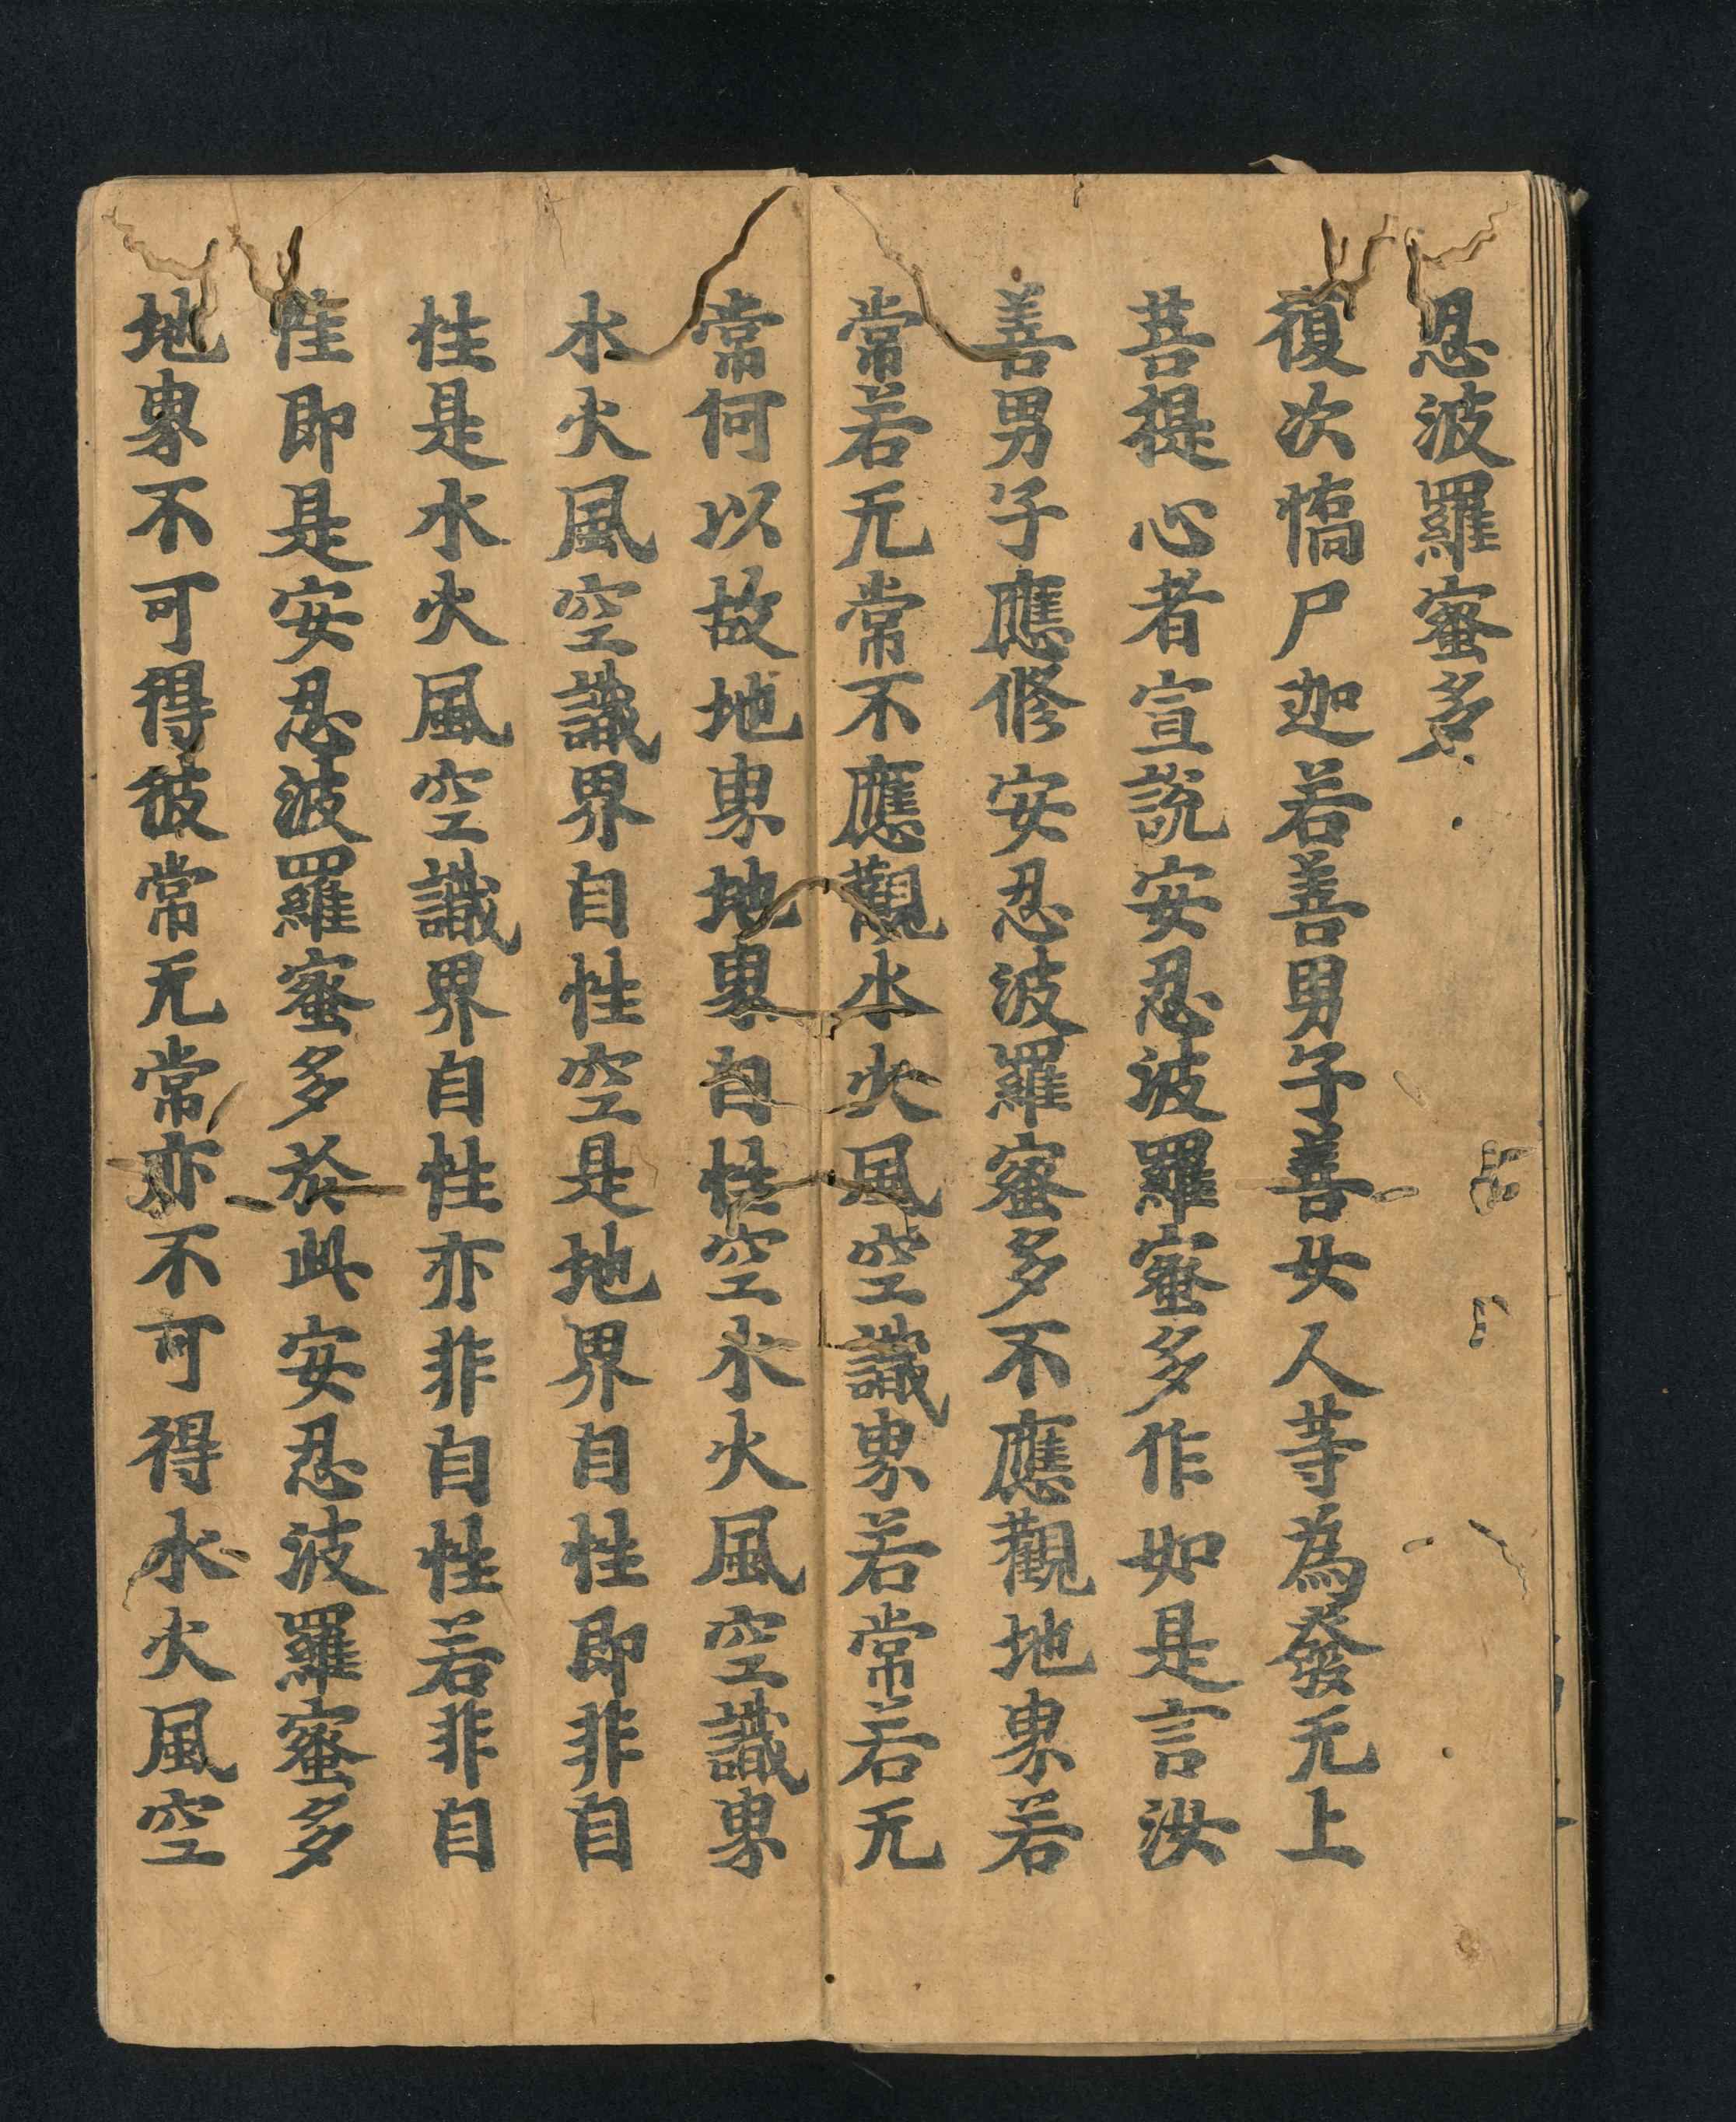 忍波羅蜜多
復次憍尸迦若善男子善女人等為發无上
菩提心者宣說安忍波羅蜜多作如是言汝
善男子應修安忍波羅蜜多不應觀地界若
常若无常不應觀水火風空識界若常若无
常何以故地界地界自性空水火風空識界
水火風空識界自性空是地界自性即非自
性是水火風空識界自性亦非自性若非自
性即是安忍波羅蜜多於此安忍波羅蜜多
地界不可得彼常无常亦不可得水火風空